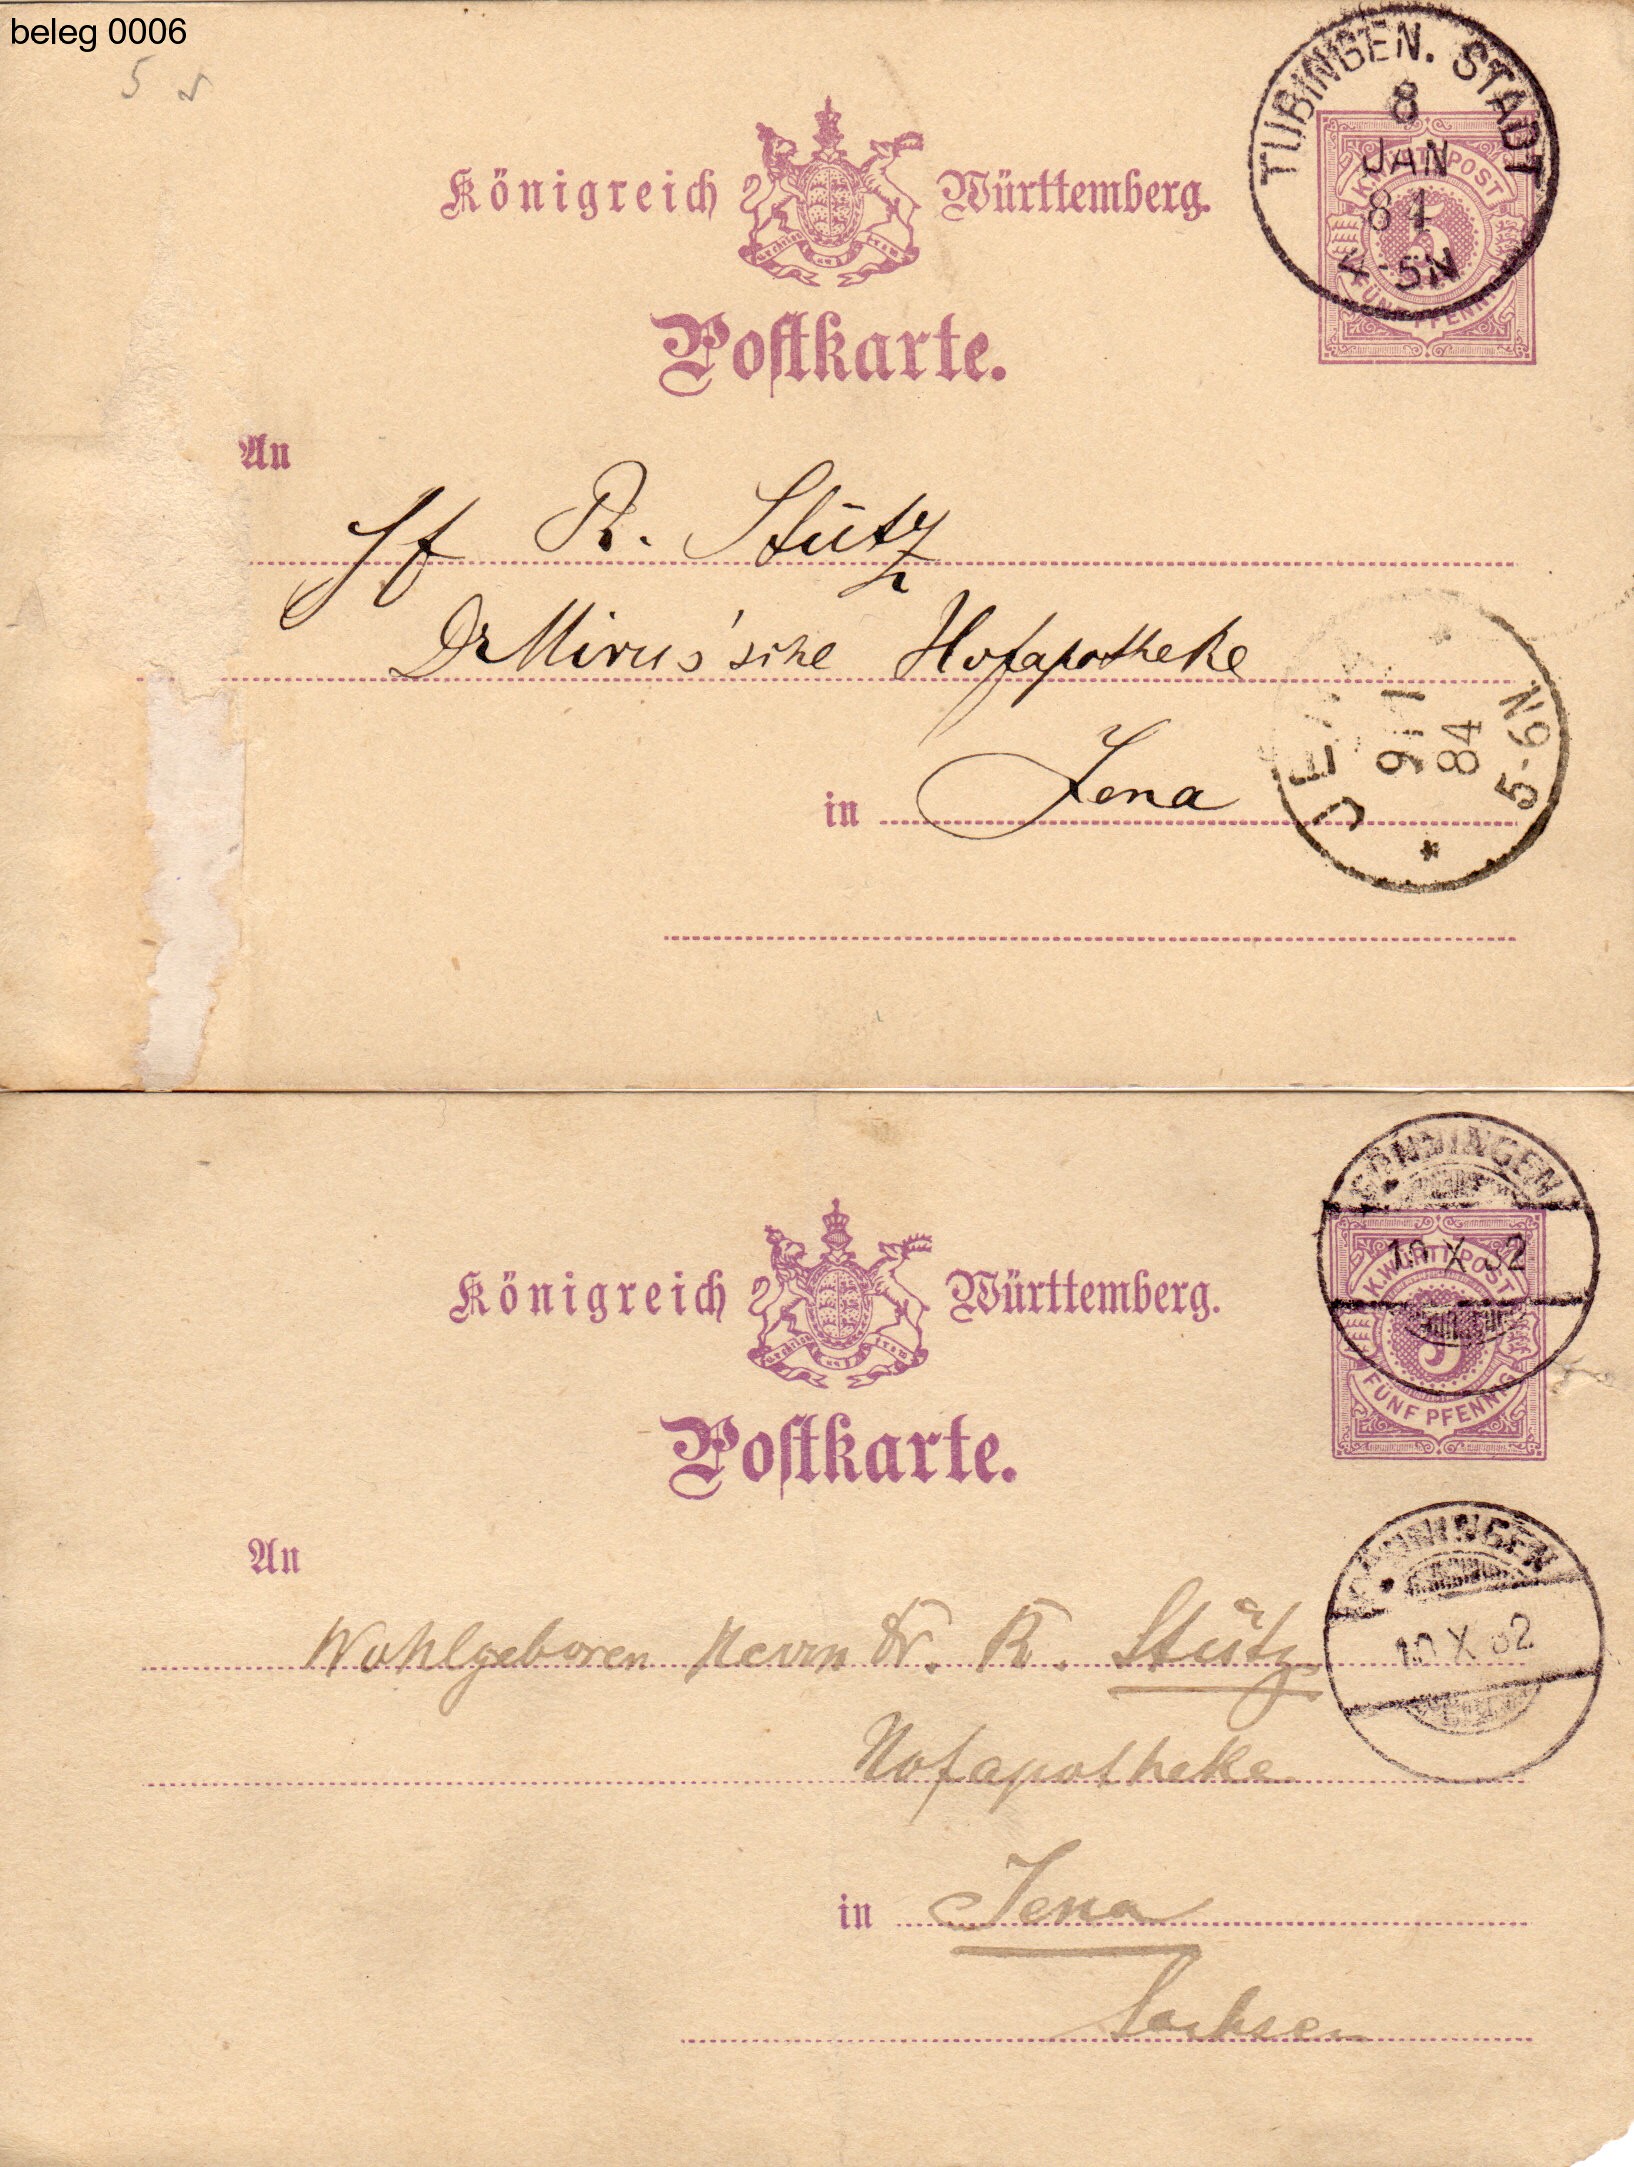 beleg 0006
5
TÜBINGEN. STADT
8
JAN
84
4-5N
K. WÜRTT. POST
5
FÜNF PFENNIG
Königreich Württemberg.
Postkarte.
An
R. Stütz
Dr Mirus'sche Hofapotheke
in Jena
JENA
9/1
84
5-6N.
GÖNNINGEN
10 X 82
K. WÜRTT. POST
5
FÜNF PFENNIG
Königreich Württemberg.
Postkarte.
An
GÖNNINGEN
10 X 82
Wohlgeboren Herrn Dr. R. Stütz
Hofapotheke
in Jena
Sachsen